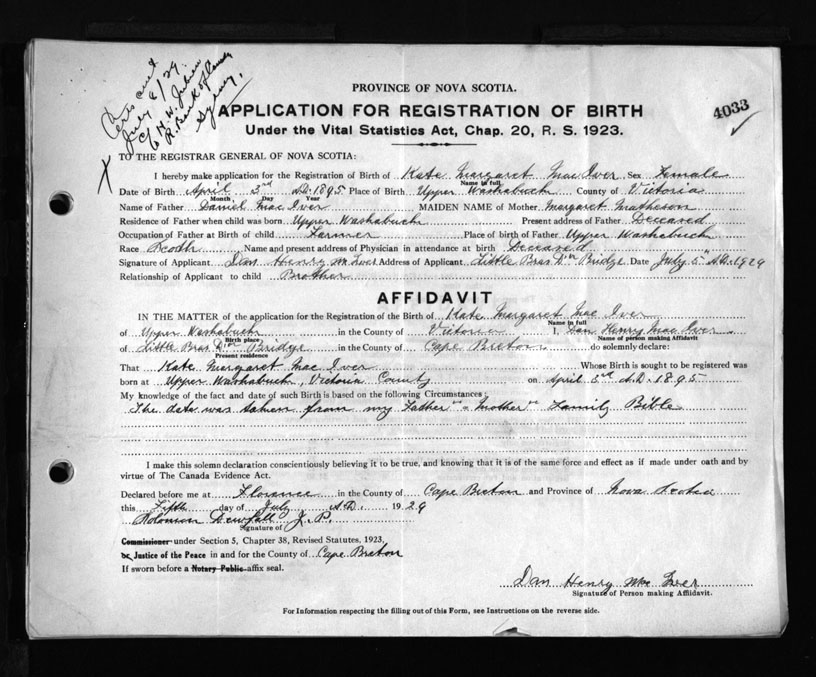 Cert sent
July 6/29
C/o H. W. Julien
R. Bank of Canada
Sydney.
PROVINCE OF NOVA SCOTIA.
APPLICATION FOR REGISTRATION OF BIRTH
4033
Under the Vital Statistics Act, Chap. 20, R. S. 1923.
TO THE REGISTRAR GENERAL OF NOVA SCOTIA:
I hereby make application for the Registration of Birth of Kate Margaret Mac Iver Sex Female
Name in full
Date of Birth April 3rd A.D. 1895 Place of Birth Upper Washabuck County of Victoria
Month, Day Year
Name of Father Daniel Mac Iver MAIDEN NAME of Mother Margaret Matheson
Residence of Father when child was born Upper Washabuck Present address of Father Deceased
Occupation of Father at Birth of child Farmer Place of birth of Father Upper Washabuck
Race Scotch Name and present address of Physician in attendance at birth Deceased
Signature of Applicant Dan Henry Mc Iver Address of Applicant Little Bras D'or Bridge Date July 5th A.D. 1929
Relationship of Applicant to child Brother
AFFIDAVIT
IN THE MATTER of the application for the Registration of the Birth of Kate Margaret Mac Iver
Name in full
of Upper Washabuck in the County of Victoria I, Dan Henry Mac Iver
Birth place Name of person making Affidavit
of Little Bras D'or Bridge in the County of Cape Breton do solemnly declare:
Present residence
That Kate Margaret Mac Iver Whose Birth is sought to be registered was
born at Upper Washabuck, Victoria County on April 3rd A.D. 1895
My knowledge of the fact and date of such Birth is based on the following Circumstances:
The date was taken from my Father " Mother " Family Bible
I make this solemn declaration conscientiously believing it to be true, and knowing that it is of the same force and effect as if made under oath and by
virtue of The Canada Evidence Act.
Declared before me at Florence in the County of Cape Breton and Province of Nova Scotia
this Fifth day of July A.D. 1929
Solomon J. P.
Signature of
Commissioner under Section 5, Chapter 38, Revised Statutes, 1923,
or Justice of the Peace in and for the County of Cape Breton
If sworn before a Notary Public affix seal.
Dan Henry Mac Iver
Signature of Person making Affidavit.
For Information respecting the filling out of this Form, see Instructions on the reverse side.